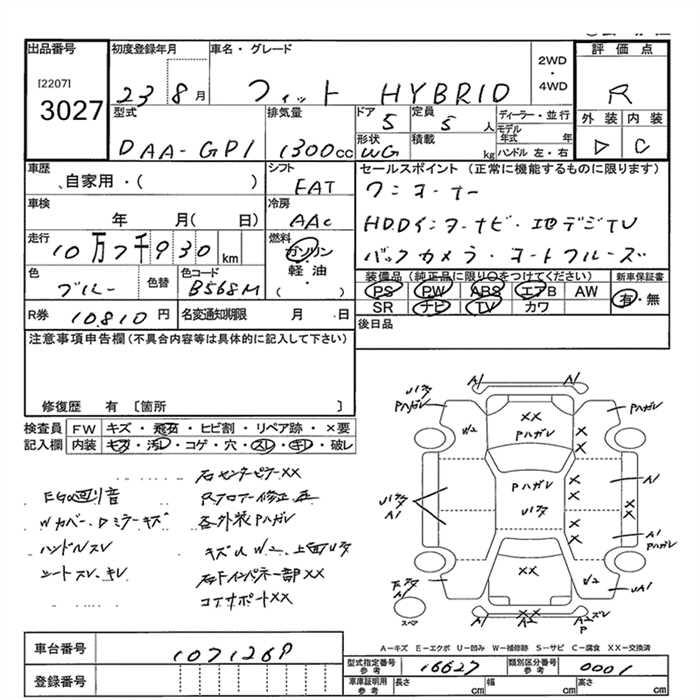 出品番号
[2207]
3027
初度登録年月
23 8月
車名・グレード
フィット HYBRID
2WD
・
4WD
評価点
R
外装 内装
D C
型式
DAA-GP1
排気量
1300cc
ドア
5
定員
5人
形状
WG
積載
kg
ディーラー・並行
モデル年式 年
ハンドル 左・右
車歴
自家用・( )
シフト
FAT
車検
年 月( 日)
冷房
AAC
走行
10万7千930km
燃料
ガソリン
・
軽油
( )
色
ブルー
色替
色コード
B568M
R券
10810円
名変通知期限 月 日
セールスポイント(正常に機能するものに限ります)
ワンオーナー
HDDインターナビ・地デジTV
バックカメラ・オートクルーズ
装備品(純正品に限り○をつけてください)
PS PW ABS エアB AW
SR ナビ TV カワ
新車保証書
有・無
後日品
注意事項申告欄(不具合内容等は具体的に記入して下さい)
修復歴 有〔箇所 〕
検査員記入欄
FW キズ・飛石・ヒビ割・リペア跡・×要
内装 キズ・汚レ・コゲ・穴・スレ・キレ・破レ
EG回り音
Wカバー・Dミラーキズ
ハンドルスレ
シートスレ・キレ
右センターピラーXX
Rフロアー修正
各外装Pハガレ
キズU W2
右Fインパネ一部XX
コアサポートXX
U1キズ
Pハガレ
A1
A1
Pハガレ
W2
XX
Pハガレ
Pハガレ
U1キズ
U1キズ
A1
A1
A1
Pハガレ
XX
W2
UA1
A1
XX
A2
XX
P
スペア
A-キズ E-エクボ U-凹み W-補修跡 S-サビ C-腐食 XX-交換済
車台番号
1071269
登録番号
型式指定番号 参考
16627
類別区分番号 参考
0001
車庫証明用 参考
長さ cm
幅 cm
高さ cm